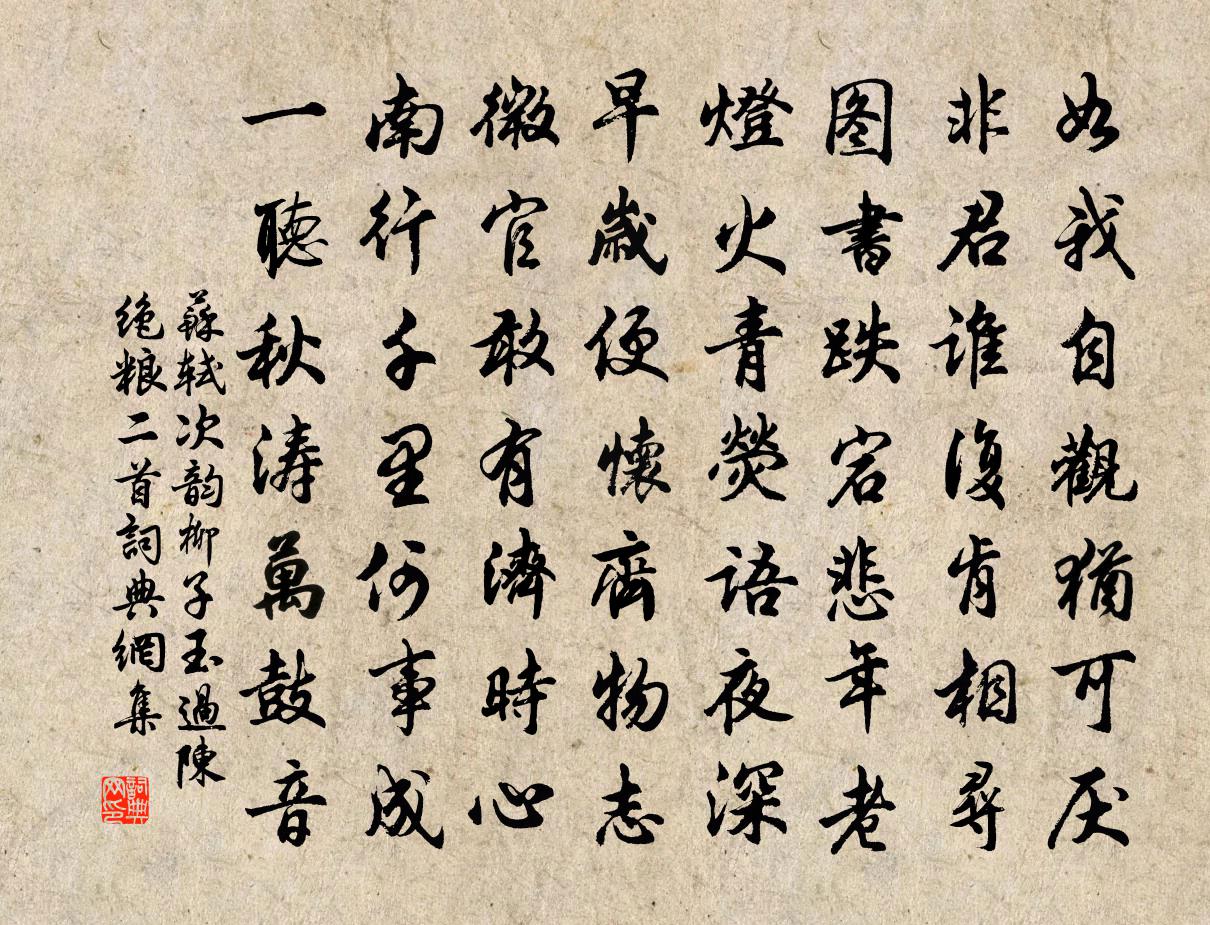 如我自觀猶可厌
非君誰復肯相尋
图書跌宕悲年老
燈火青熒語夜深
早歲便懷齊物志
微官敢有濟時心
南行千里何事成
一聽秋涛萬鼓音
蘇轼次韵柳子玉過陳
绝粮二首詞典網集
詞典网印